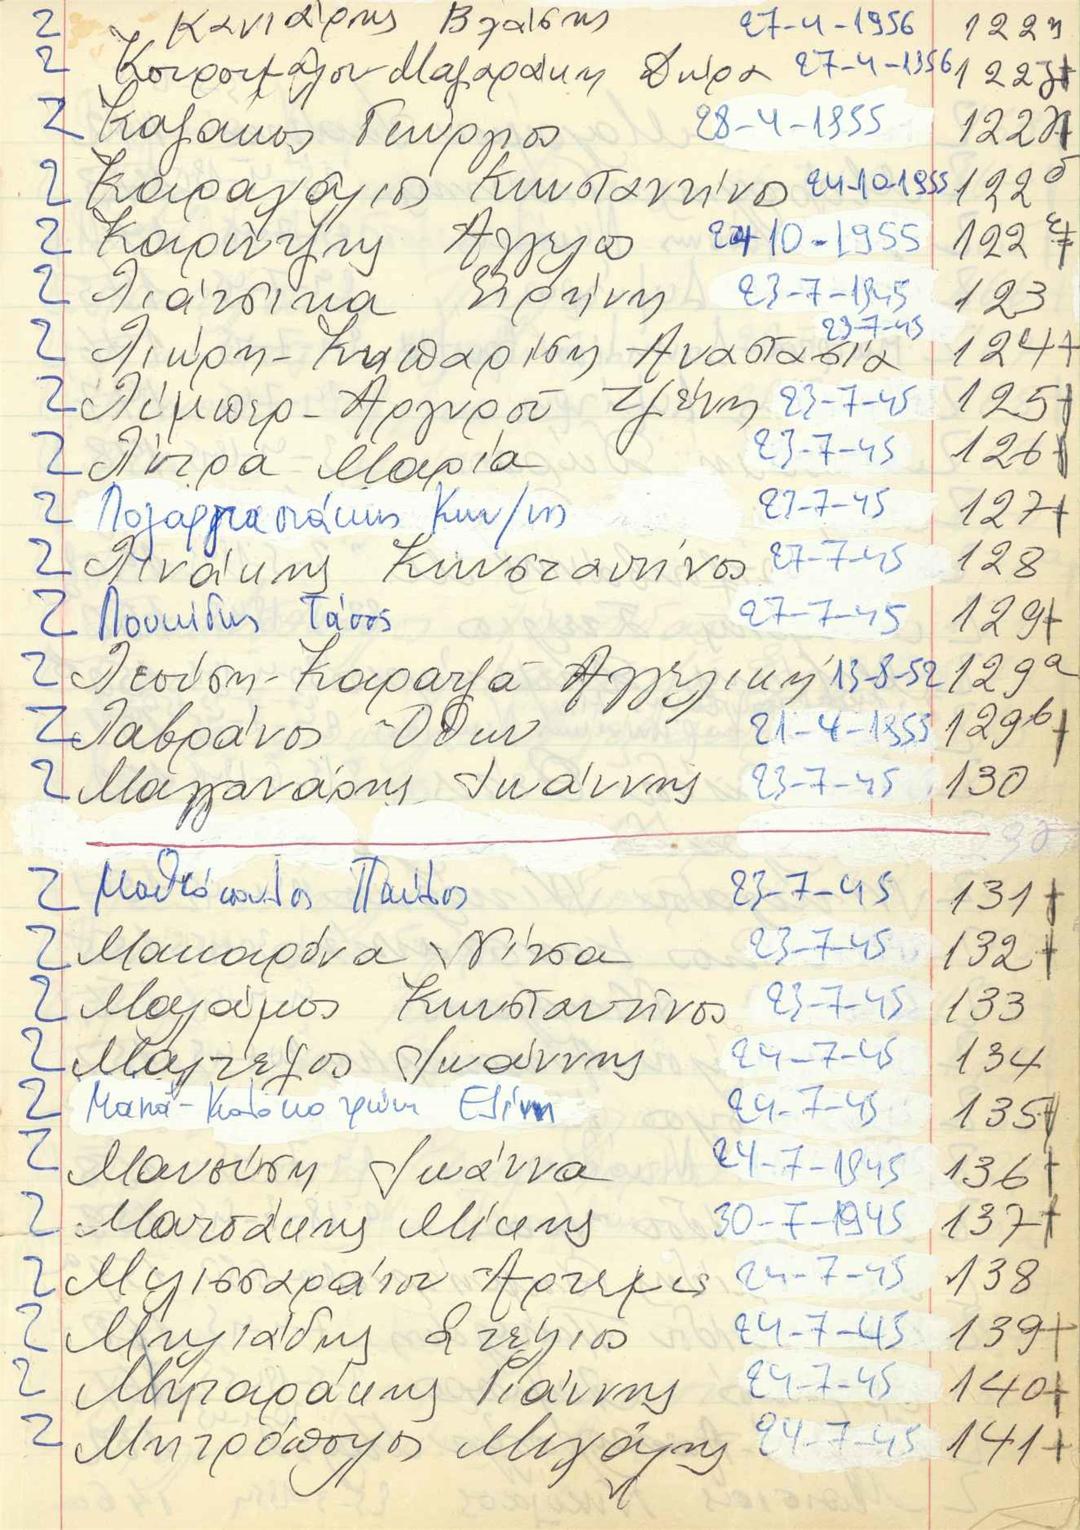 Ζ Κανιάρης Βλάσης 27-4-1956 122η
Ζ Μαζαράκη Δώρα 27-4-1956 122
Ζ Καζάκος Γεώργιος 28-4-1955 122
Ζ Καραγάλιος Κωνσταντίνος 24-10-1955 122δ
Ζ Καρύτζης Άγγελος 24-10-1955 122
Ζ Λιάτσικα Ειρήνη 23-7-1945 123
Ζ Λικέρη-Κυπαρίση Αναστασία 23-7-45 124+
Ζ Λύμπερ-Αργυρού Τζένη 23-7-45 125+
Ζ Λύτρα Μαρία 23-7-45 126+
Ζ Κων/νος 27-7-45 127+
Ζ Λινάκης Κωνσταντίνος 27-7-45 128
Ζ Λουκίδης Τάσος 27-7-45 129+
Ζ Λεούση-Καρατζά Αγγελική 13-8-52 129α
Ζ Λαβράνος Όθων 21-4-1955 129b+
Ζ Μαγγανάρης Ιωάννης 23-7-45 130
Ζ Μαθιόπουλος Παύλος 23-7-45 131+
Ζ Μακαρόνα Νίτσα 23-7-45 132+
Ζ Μαλάμος Κωνσταντίνος 23-7-45 133
Ζ Μαλτέζος Ιωάννης 24-7-45 134
Ζ Ελένη 24-7-45 135+
Ζ Μανούση Ιωάννα 24-7-1945 136+
Ζ Ματσάκης Μίκης 30-7-1945 137+
Ζ Μελισσαράτου Άρτεμις 24-7-45 138
Ζ Μηλιάδης Στέλιος 24-7-45 139+
Ζ Μηταράκης Γιάννης 24-7-45 140+
Ζ Μητρόπουλος Μιχάλης 24-7-45 141+